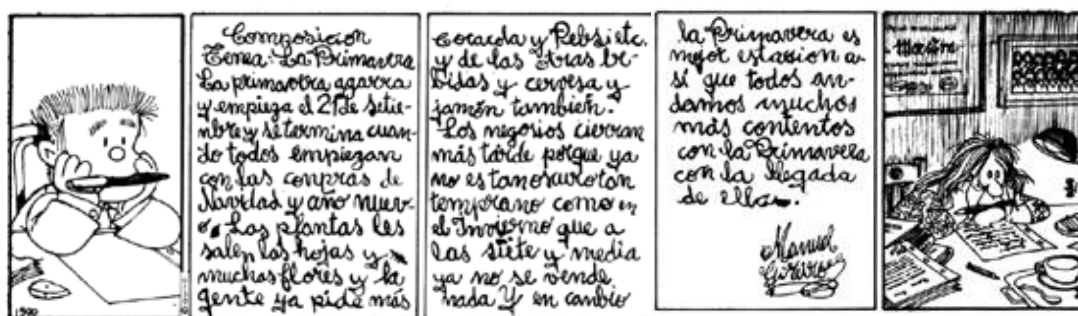 Composicion
Tema: La Primavera
La primavera agarra
y empieza el 21 de Setie-
nbre y se termina cuan-
do todos empiezan
con las conpras de
Navidad y año nuev-
o. Las plantas les
salen las hojas y
muchas flores y la
gente ya pide más
Cocacola y Pebsi etc.
y de las otras be-
bidas y cervesa y
jamón tambien.
Los negosios cierran
más tarde porque ya
no es tan oscuro tan
temprano como en
el Invierno que a
las siete y media
ya no se vende
nada Y en canbio
la Primavera es
mejor estasion a-
sí que todos an-
damos muchos
más contentos
con la Primavera
con la llegada
de ella.
Manuel
Goreiro
Maestra
1500